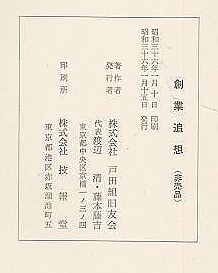 創業追想 (非売品)
昭和三十六年一月十日 印刷
昭和三十六年一月十五日 発行
著作者
発行者 株式会社 戸田組旧友会
代表 渡辺 清・藤本勝吉
東京都中央区京橋一ノ三ノ四
印刷所 株式会社 技報堂
東京都港区赤坂溜池町五